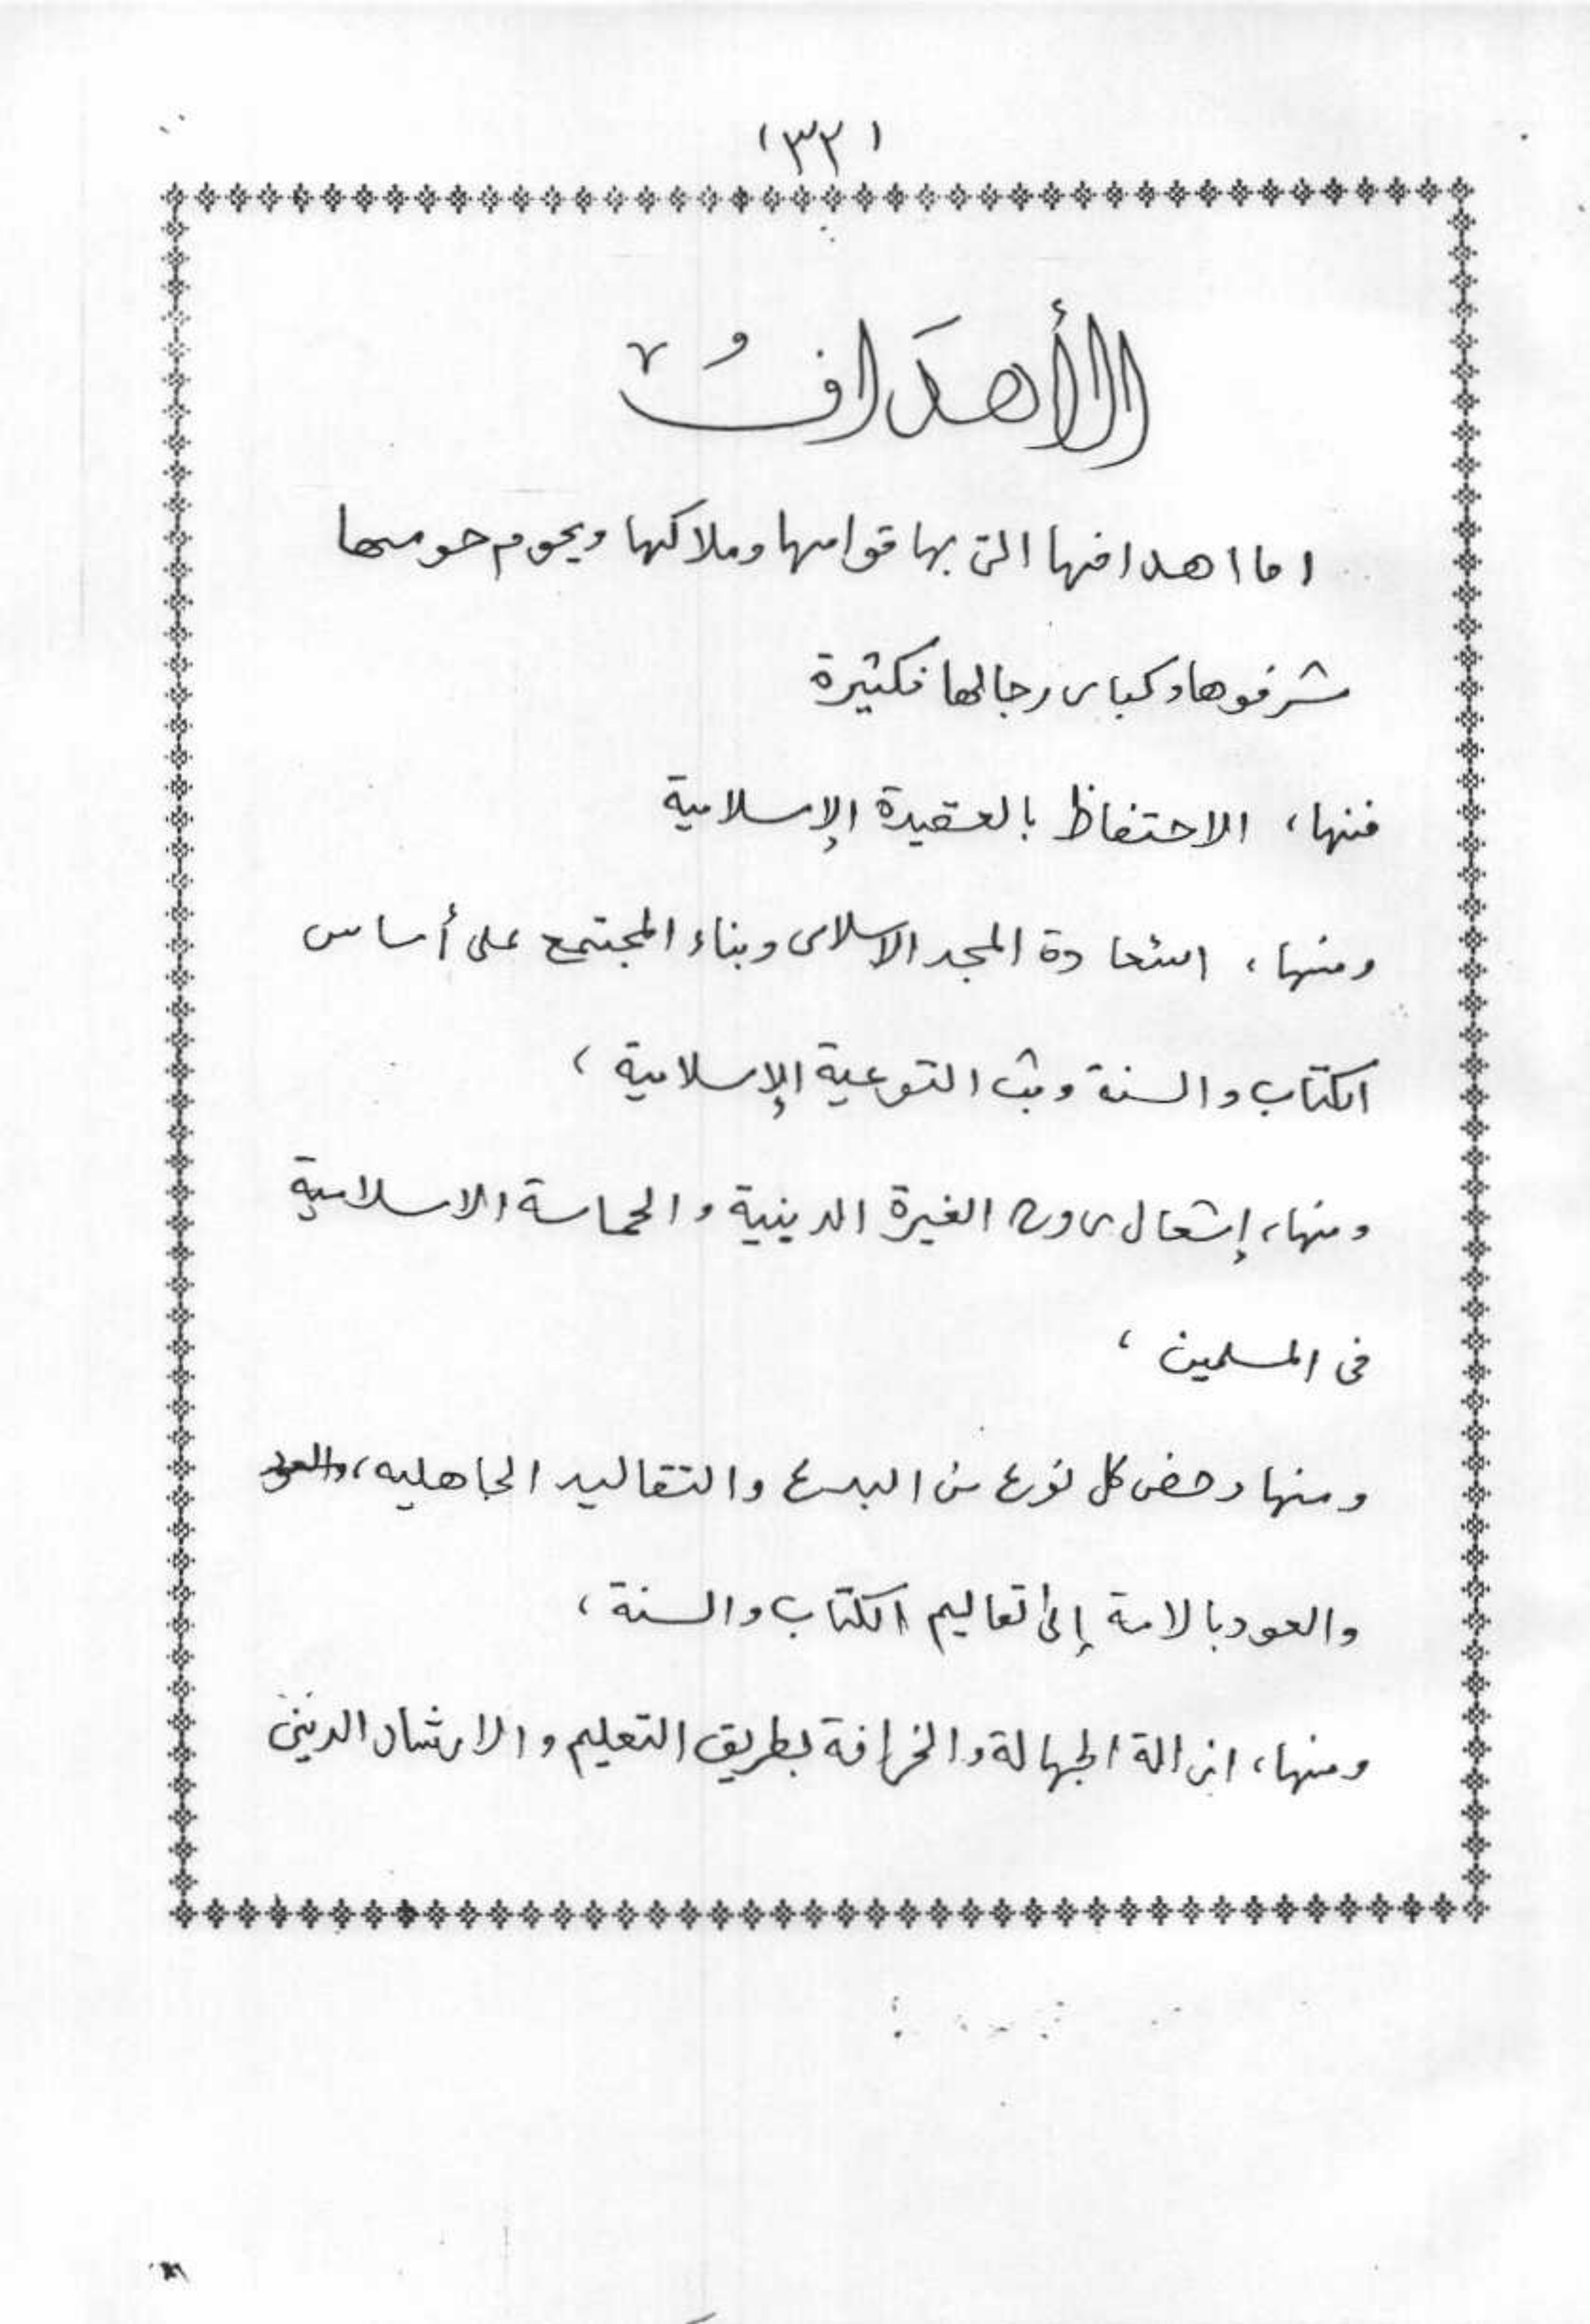 (٣٢)
الأهدَافُ
اما اهدافها التى بها قوامها وملاكها ويحوم حومها
شرفوها وكبار رجالها فكثيرة
فمنها، الاحتفاظ بالعقيدة الإسلامية
ومنها، استعادة المجد الاسلامى وبناء المجتمع على أساس
الكتاب والسنة وبث التوعية الإسلامية،
ومنها، إشعال روح الغيرة الدينية والحماسة الاسلامية
فى المسلمين،
ومنها رحض كل نوع من البدع والتقاليد الجاهليه، والعود
والعود بالامة إلى تعاليم الكتاب والسنة،
ومنها، ازالة الجهالة والخرافة بطريق التعليم والارشاد الدينى